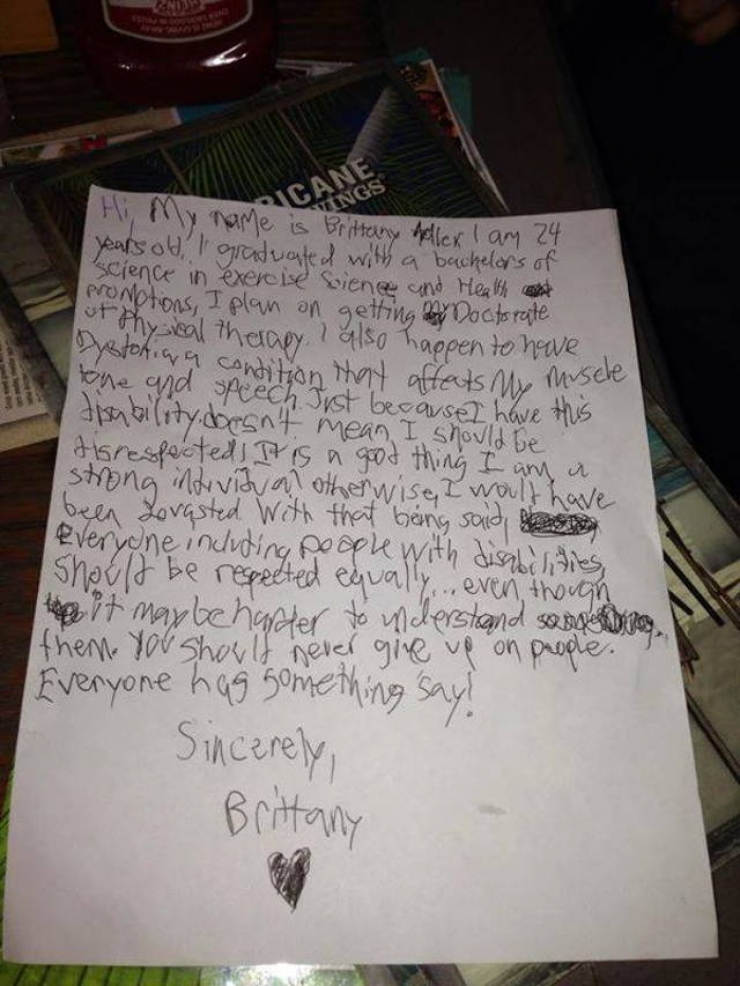 HEINZ
RICANE
WINGS
Hi, My name is Brittany I am 24
years old, I graduated with a bachelors of
science in exercise Science and Health
promotions, I plan on getting my Doctorate
of Physical Therapy. I also happen to have
Dystonia a condition that affects My muscle
tone and speech. Just because I have this
disability, doesn't mean I should be
disrespected! It is a good thing I am a
strong individual otherwise, I would have
been devasted. With that being said,
Everyone including people with disabilities,
should be respected equally... even though
it may be harder to understand
them. You should never give up on people.
Everyone has something say!
Sincerely,
Brittany